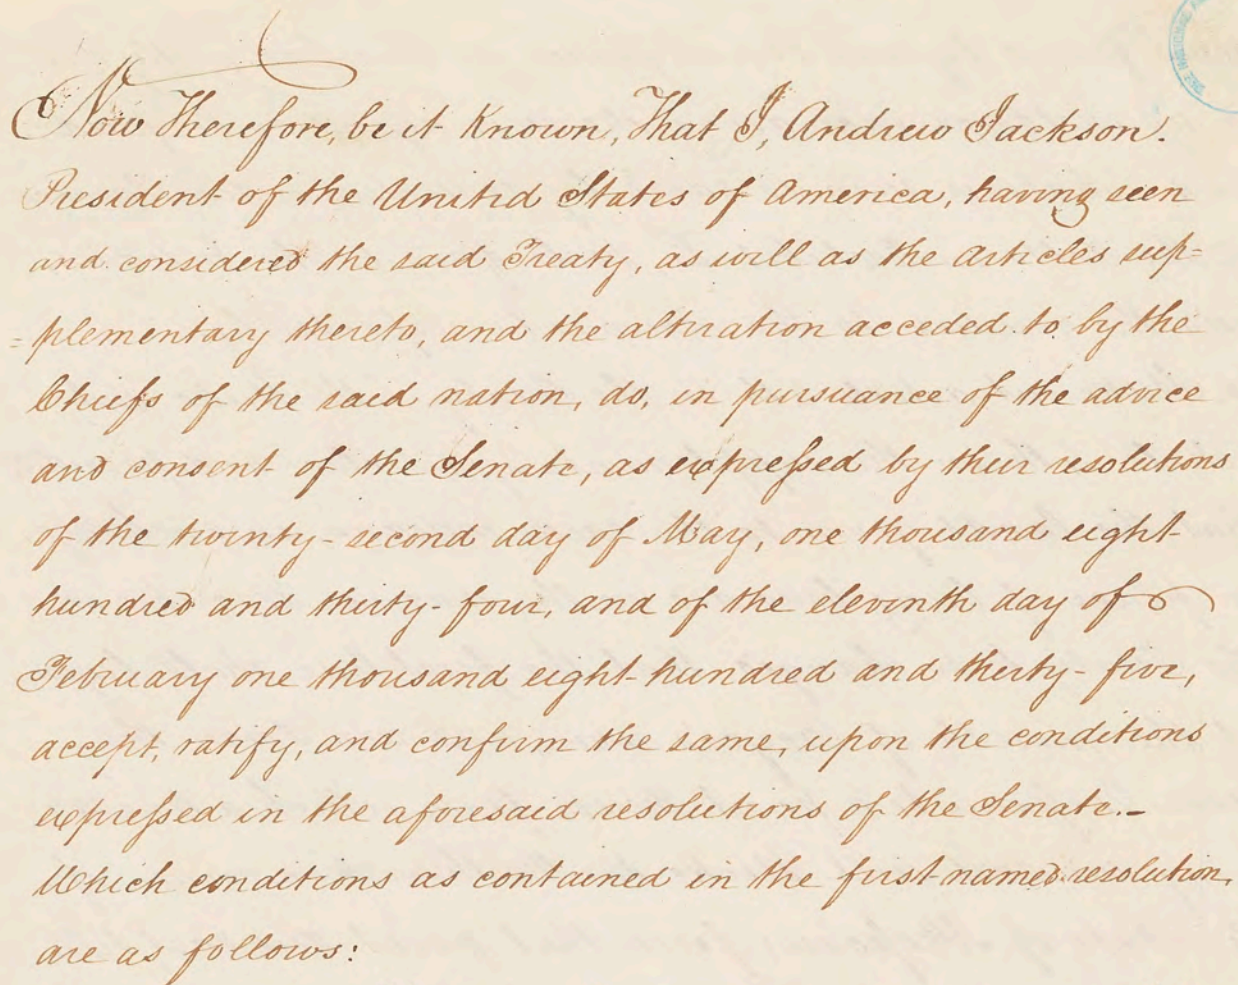 Now Therefore, be it Known, That I, Andrew Jackson.
President of the United States of America, having seen
and considered the said Treaty, as well as the articles sup=
=plementary thereto, and the alteration acceded to by the
Chiefs of the said nation, do, in pursuance of the advice
and consent of the Senate, as expressed by their resolutions
of the twenty-second day of May, one thousand eight
hundred and thirty-four, and of the eleventh day of
February one thousand eight hundred and thirty-five,
accept, ratify, and confirm the same, upon the conditions
expressed in the aforesaid resolutions of the Senate.-
Which conditions as contained in the first named resolution,
are as follows: